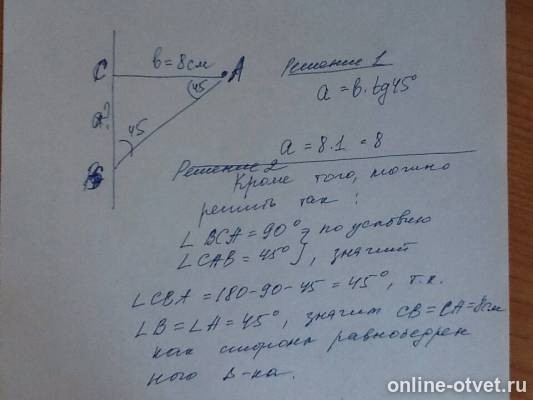 C b = 8см A
45
a?
45
B
Решение 1
a = b · tg45°
a = 8 · 1 = 8
Решение 2
Кроме того, можно
решить так:
∠ BCA = 90° } по условию
∠ CAB = 45° }, значит
∠ CBA = 180 - 90 - 45 = 45°, т.к.
∠ B = ∠ A = 45°, значит CB = CA = 8см
как стороны равнобедрен
ного Δ-ка.
online-otvet.ru